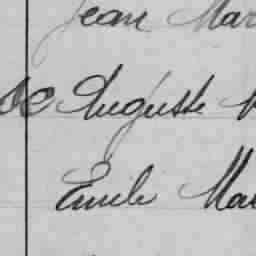 Jean Mar
Auguste
Emile Mar